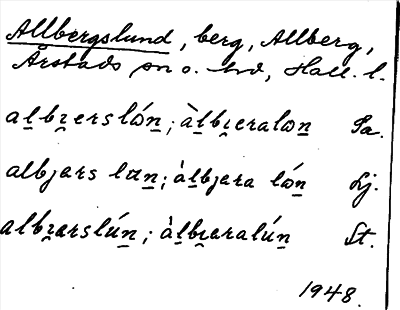 Allbergslund, berg, Allberg,
Årstads sn o. hd, Hall. l.
alberslón; àlberalon Sa.
albjars lun; àlbjara lón Lj.
albarslún; àlbaralún St.
1948.